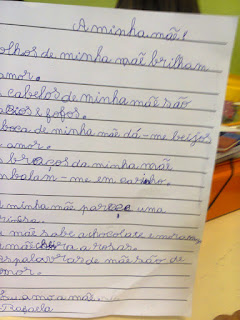 A minha mãe!
olhos de minha mãe brilham
amor.
cabelos de minha mãe são
e fofos.
boca de minha mãe dá-me beijos
e amor.
braços da minha mãe
embalam-me em carinho.
minha mãe parece uma
mãe sabe a chocolate e morango
mãe cheira a rosas.
palavras de mãe são de
amor.
Eu amo a mãe.
Rafaela